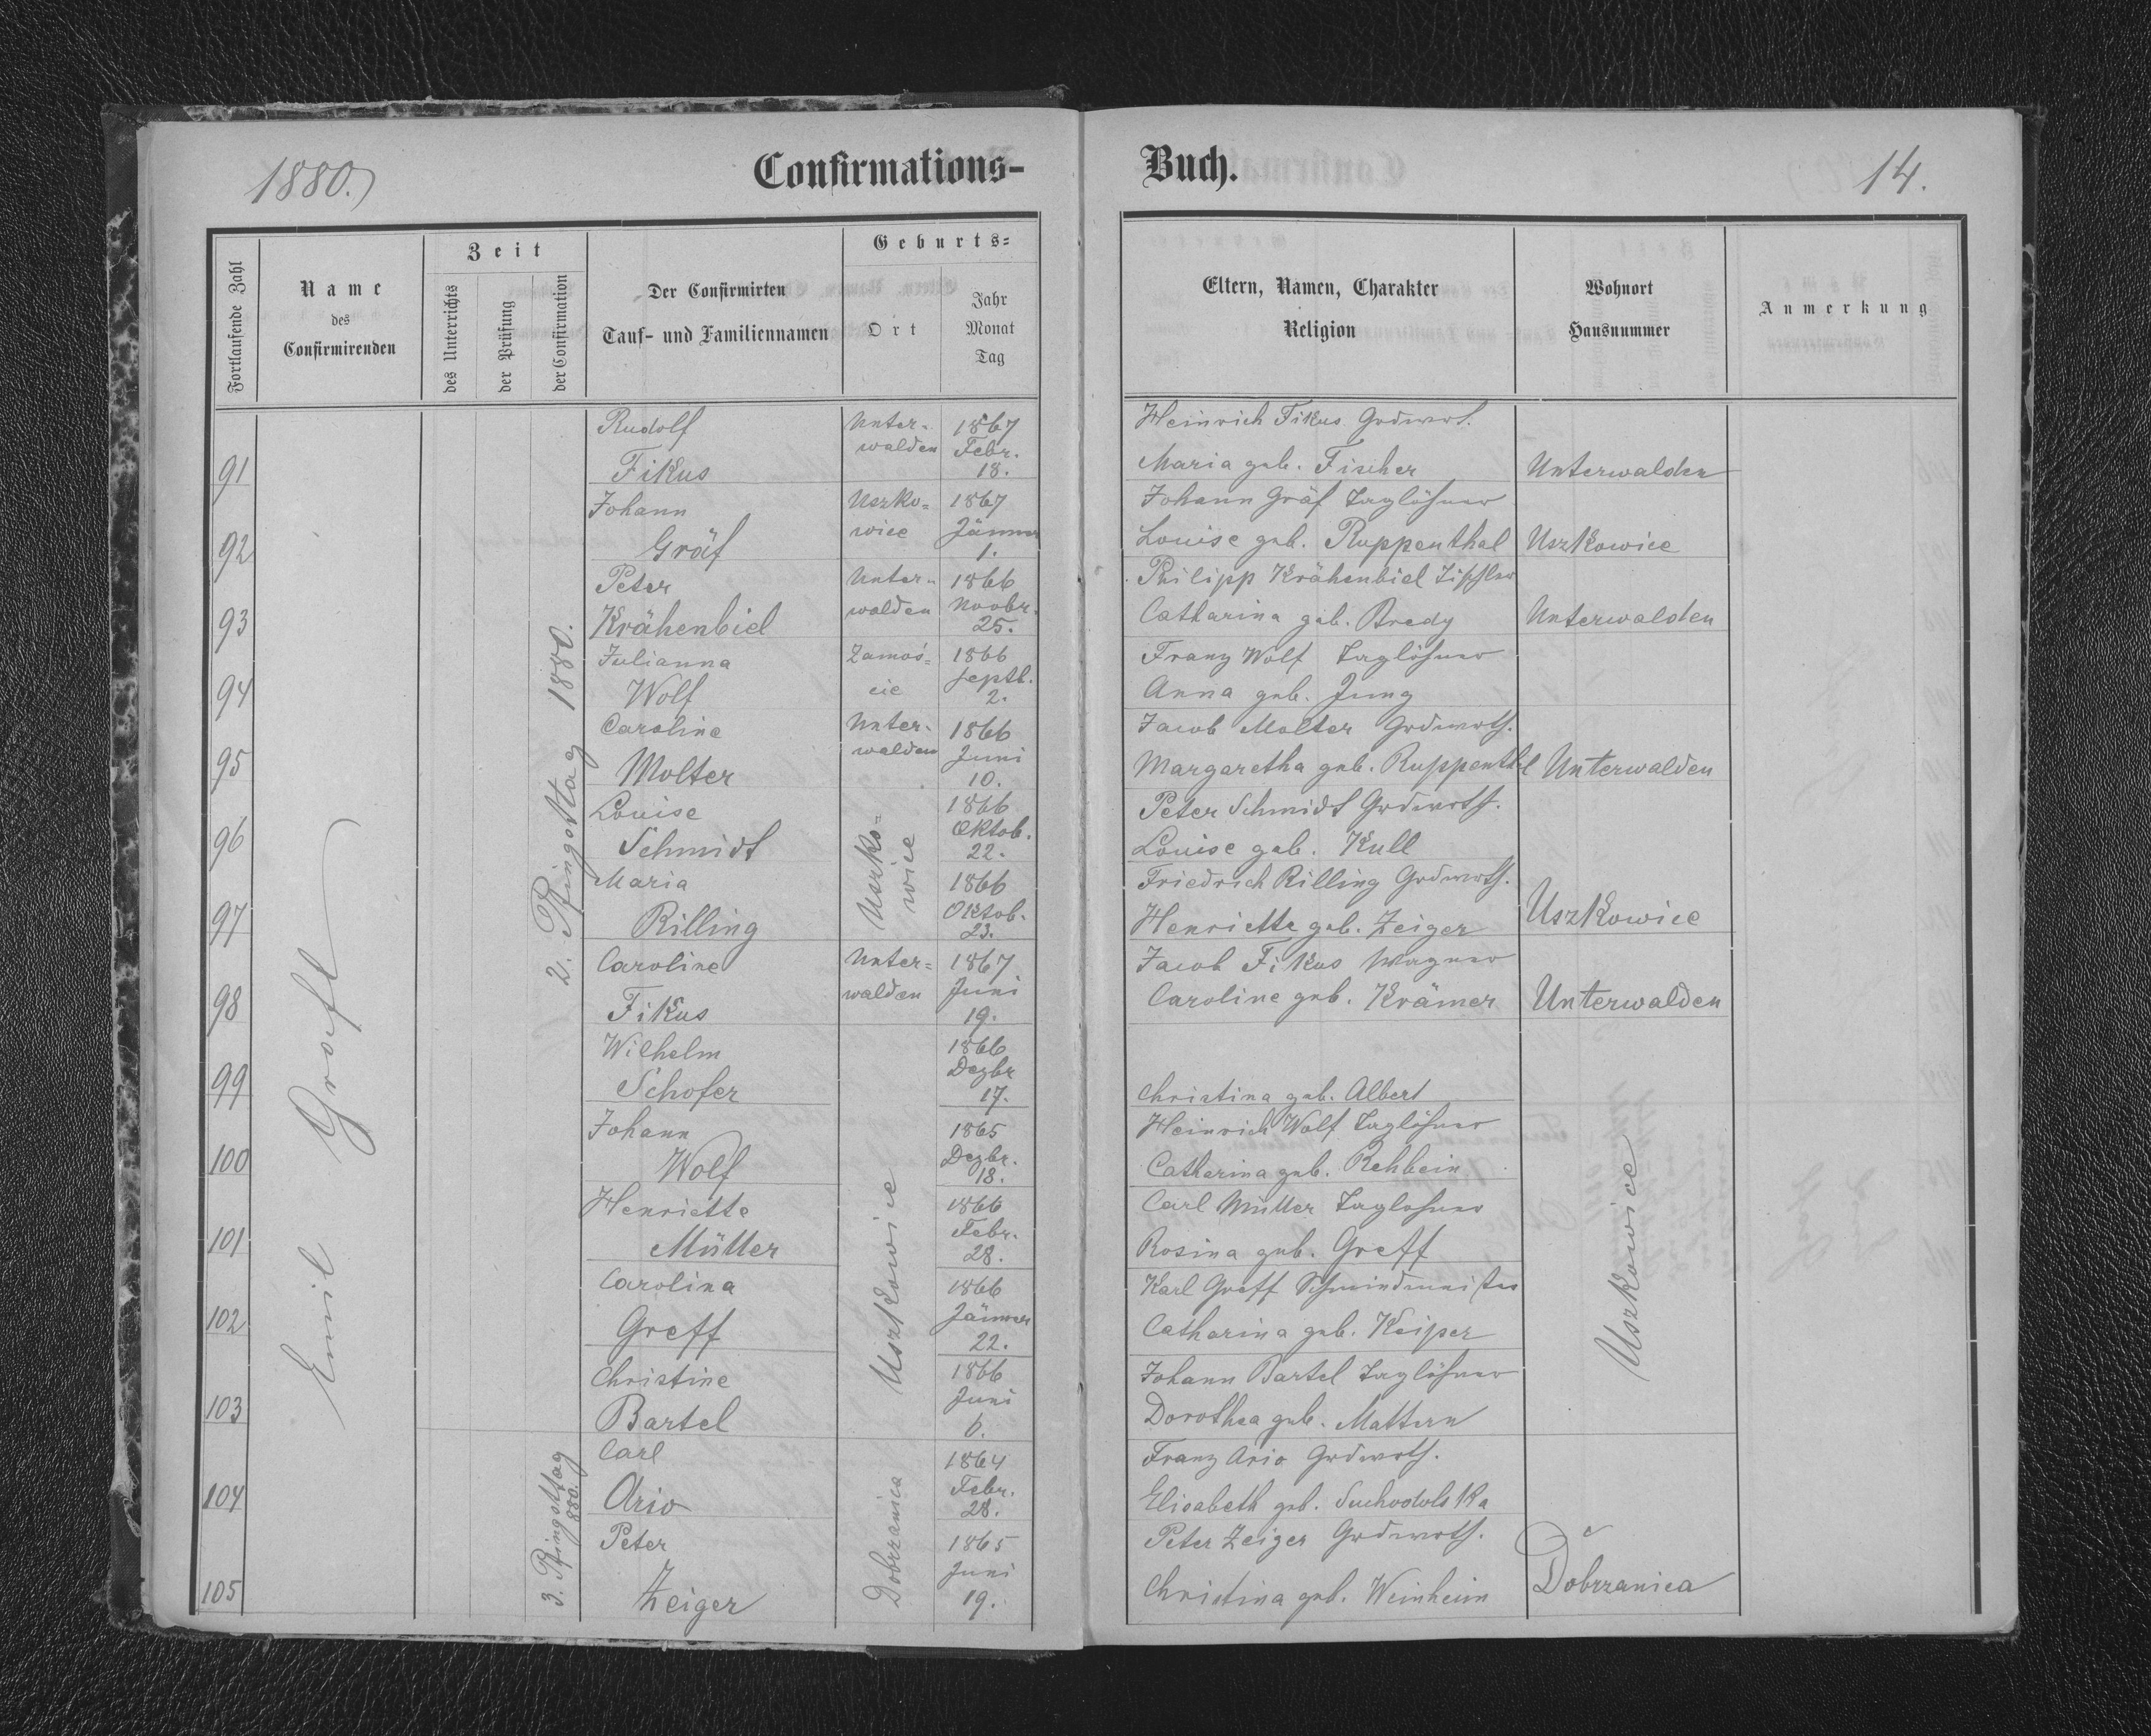 1880.
Confirmations-
Buch.
14.
Fortlaufende Zahl
Name
des
Confirmirenden
Zeit
des Unterrichts
der Prüfung
der Confirmation
Der Confirmirten
Tauf- und Familiennamen
Geburts-
Ort
Jahr
Monat
Tag
Eltern, Namen, Charakter
Religion
Wohnort
Hausnummer
Anmerkung
Emil Groft
2. Pfingsttag 1880.
91
Rudolf
Fikus
Unter-
walden
1867
Febr.
18.
Heinrich Fikus Grdwrt.
Maria geb. Fischer
Unterwalden
92
Johann
Gräf
Uszko-
wice
1867
Jänner
1.
Johann Gräf Taglöhner
Louise geb. Ruppenthal
Uszkowice
93
Peter
Krähenbiel
Unter-
walden
1866
Novbr.
25.
Philipp Krähenbiel Tischler
Catharina geb. Bredy
Unterwalden
94
Julianna
Wolf
Zamoś-
cie
1866
Septb.
2.
Franz Wolf Taglöhner
Anna geb. Jung
95
Caroline
Molter
Unter-
walden
1866
Juni
10.
Jacob Molter Grdwrth.
Margaretha geb. Ruppenthal
Unterwalden
96
Louise
Schmidt
Uszko-
wice
1866
Oktob.
22.
Peter Schmidt Grdwrth.
Louise geb. Kull
97
Maria
Rilling
1866
Oktob.
23.
Friedrich Rilling Grdwrth.
Henriette geb. Zeiger
Uszkowice
98
Caroline
Fikus
Unter-
walden
1867
Juni
19.
Jacob Fikus Wagner
Caroline geb. Krämer
Unterwalden
99
Wilhelm
Schofer
Uszkowice
1866
Dezbr
17.
Christina geb. Albert
Uszkowice
100
Johann
Wolf
1865
Dezbr.
18.
Heinrich Wolf Taglöhner
Catharina geb. Rehbein
101
Henriette
Müller
1866
Febr.
28.
Carl Müller Taglöhner
Rosina geb. Greff
102
Carolina
Greff
1866
Jänner
22.
Karl Greff Schmiedmeister
Catharina geb. Keiper
103
Christine
Bartel
1866
Juni
6.
Johann Bartel Taglöhner
Dorothea geb. Mattern
3. Pfingsttag
880.
104
Carl
Ario
Dobrzanica
1864
Febr.
28.
Franz Ario Grdwrth.
Elisabeth geb. Suchodolska
105
Peter
Zeiger
1865
Juni
19.
Peter Zeiger Grdwrth.
Christina geb. Weinheim
Dobrzanica